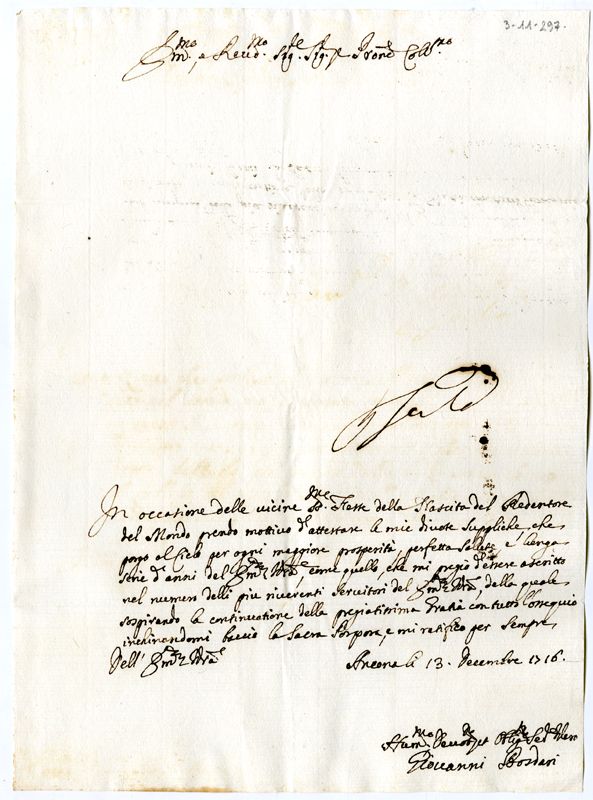 3-11-297.
Em.mo e Reud.mo Sig.re Sig.re e Prone Coll.mo
In occasione delle vicine S.me Feste della Nascita del Redentore
del Mondo prendo mottivo d'attestare le mie divote Suppliche, che
porgo al Cielo per ogni maggiore prosperità, perfetta Salute, e lunga
serie d'anni del Em.za Vra, come quello che mi pregio d'essere ascritto
nel numero delli più riverenti Servitori del Em.za Vra, della quale
sospirando la continuatione della pregiatissima Gratia con tutto l'ossequio
inchinandomi baccio la Sacra Porpora, e mi ratifico per Sempre
Dell' Em.za Vra
Ancona li 13. Decembre 1716.
Hum.mo Deuot. et Obl. Se.
Giovanni Bosdari